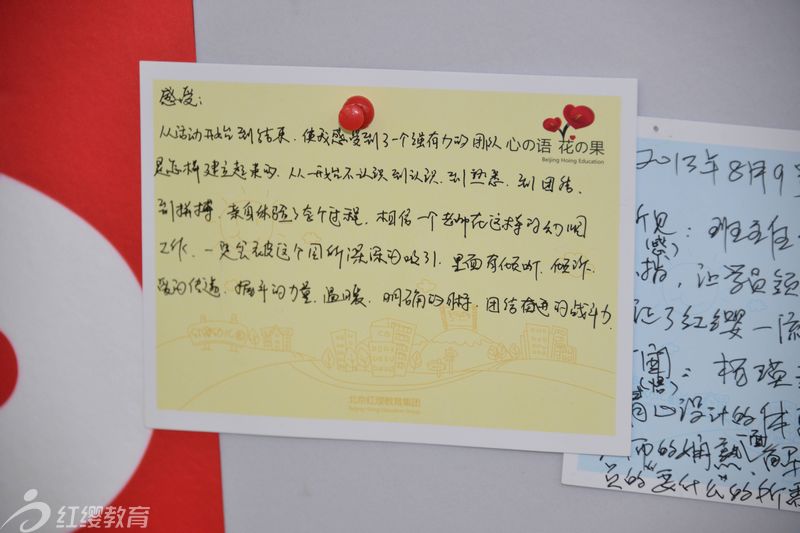 感受：
从活动开始到结束，使我感受到了一个强有力的团队
是怎样建立起来的，从一开始不认识到认识，到熟悉，到团结，
到拼搏，亲自体验了全个过程，相信一个老师在这样的幼儿园
工作，一定会被这个团所深深的吸引，里面有倾听，倾诉，
爱的传递，携手的力量，温暖，明确的目标，团结奋进的战斗力
心の语 花の果
Beijing Hoing Education
红缨幼儿园
北京红缨教育集团
Beijing Hoing Education Group
2013年8月9
所见：班主任
(感)
指，让学员领
让了红缨一流
(悟)
心设计的体
而的娴熟
员的“要什么”的
红缨教育